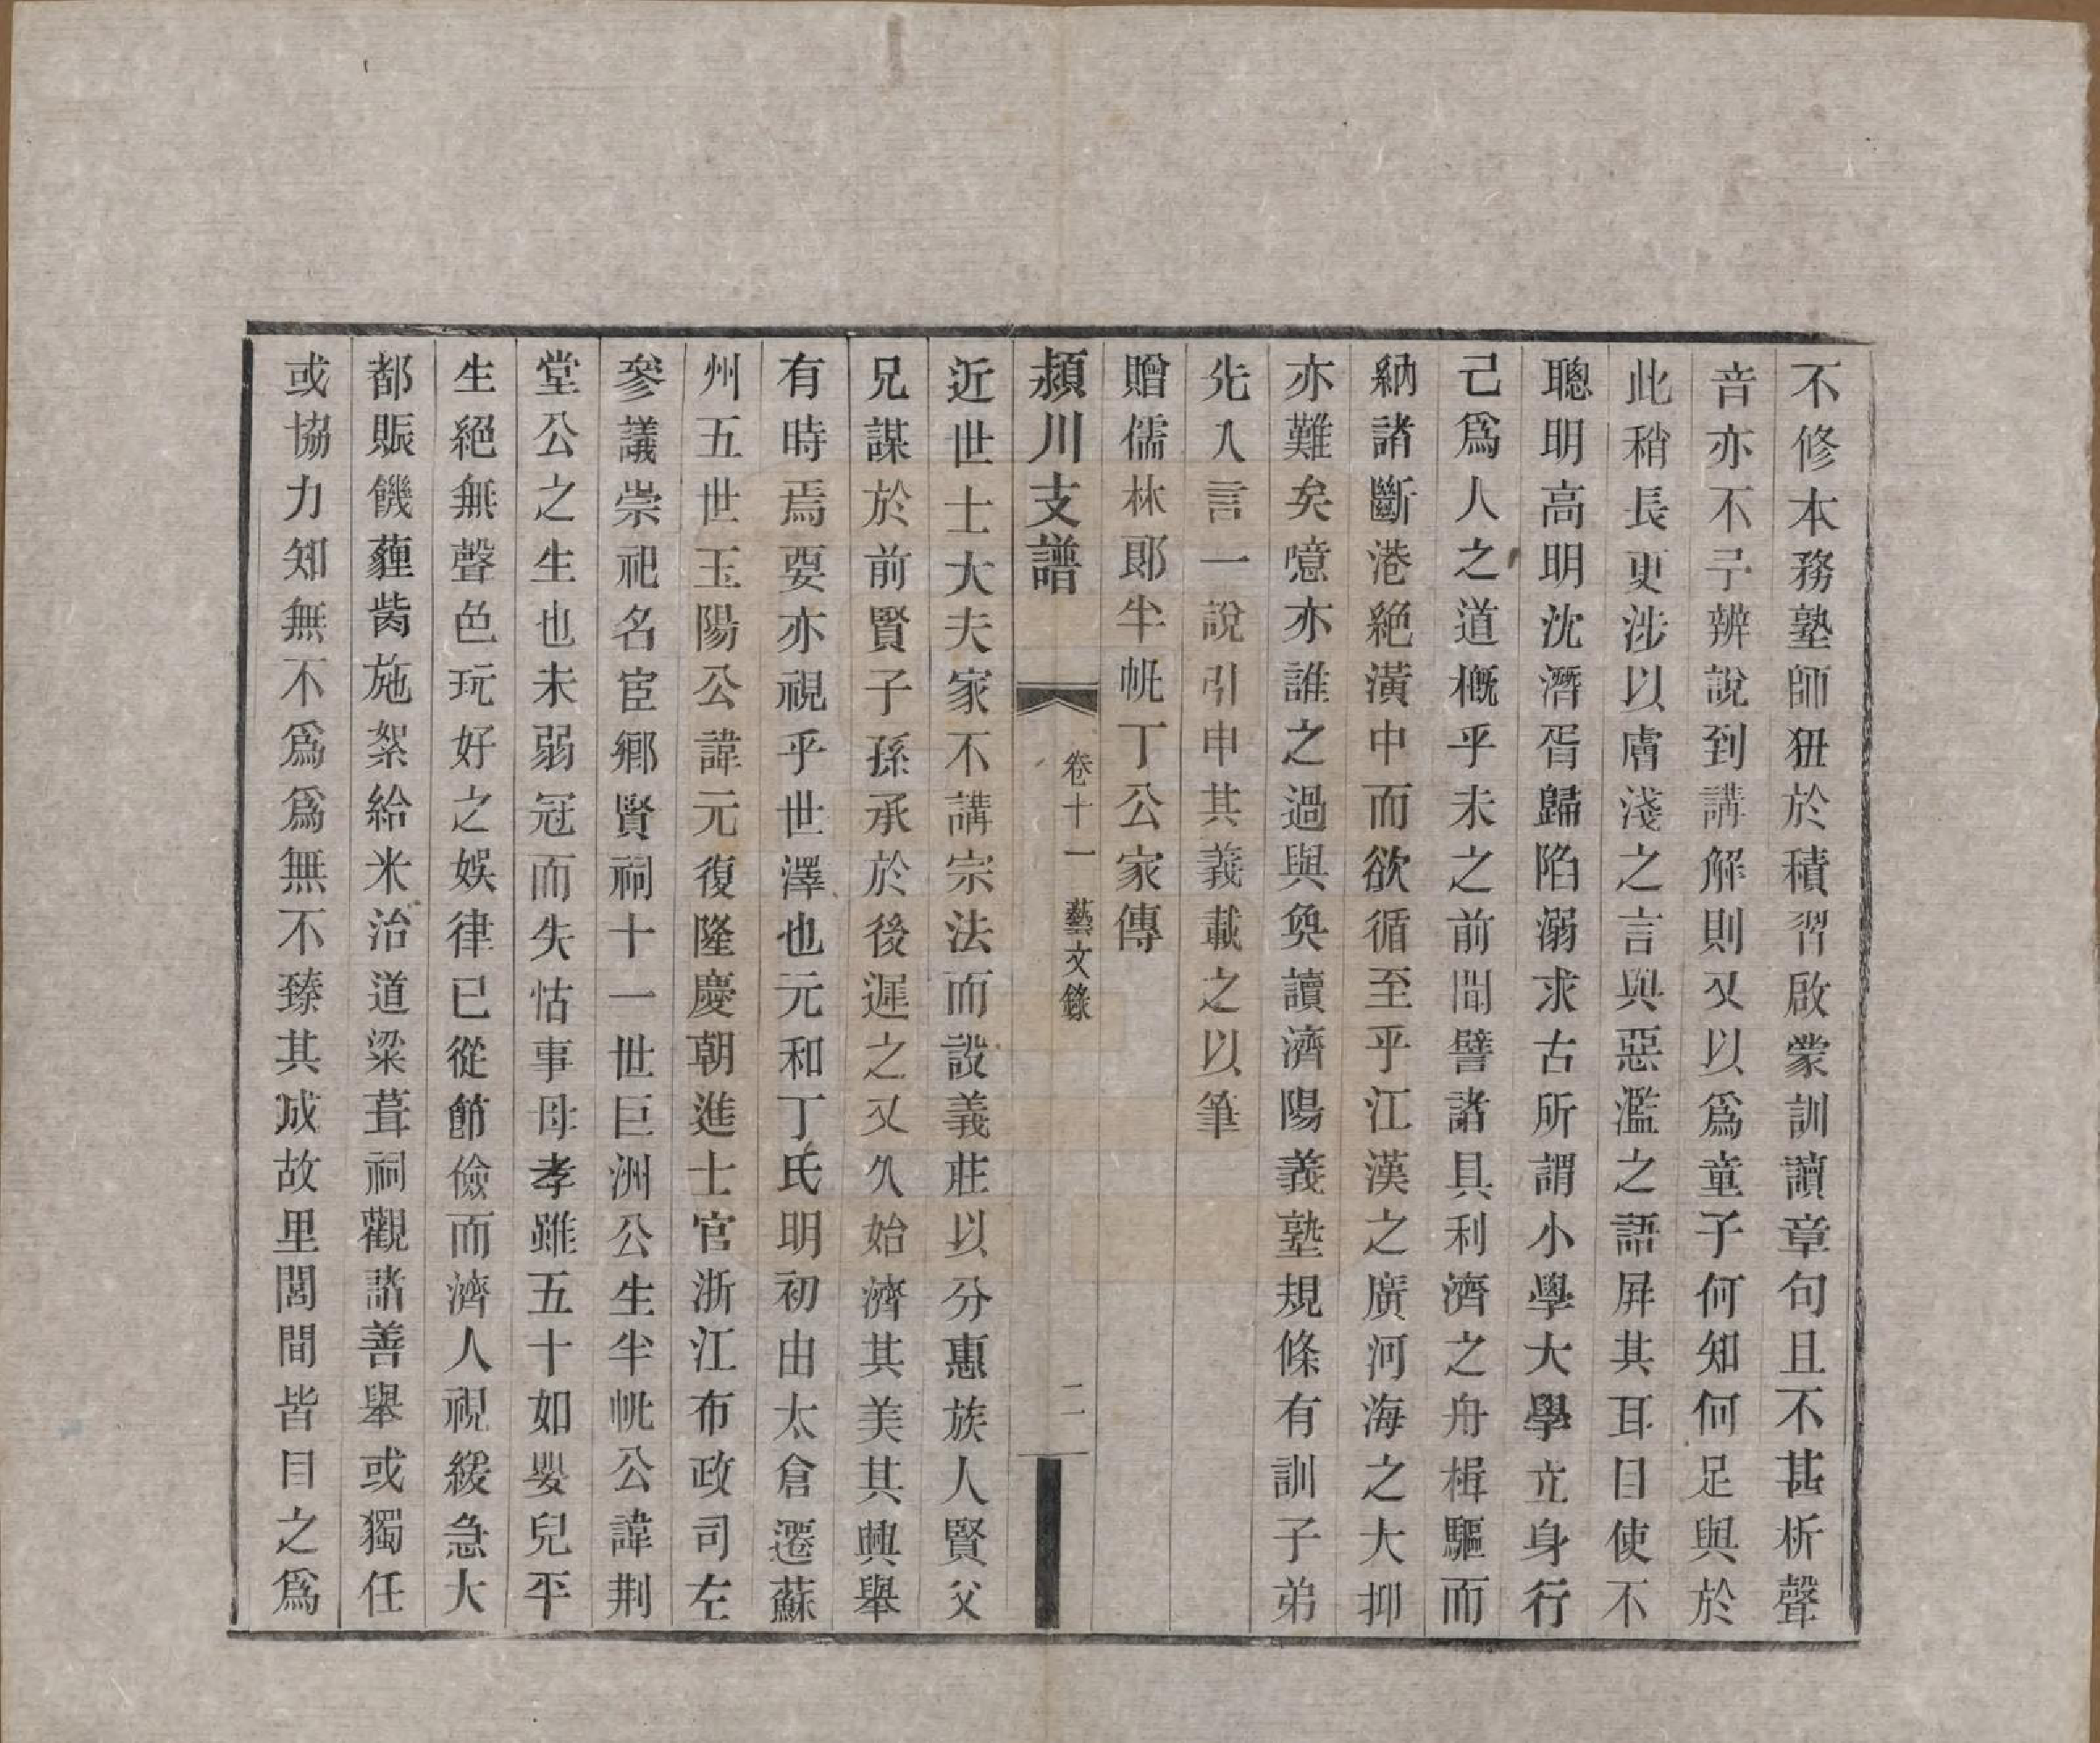 不修本務塾師狃於積習啟蒙訓讀章句且不甚析聲
音亦不予辨說到講解則又以爲童子何知何足與於
此稍長更涉以膚淺之言與惡濫之語屏其耳目使不
聰明高明沈潛胥歸陷溺求古所謂小學大學立身行
己爲人之道槪乎未之前聞譬諸具利濟之舟楫驅而
納諸斷港絕潢中而欲循至乎江漢之廣河海之大抑
亦難矣噫亦誰之過與奐讀濟陽義塾規條有訓子弟
先入言一說引申其義載之以筆
贈儒林郎半帆丁公家傳
潁川支譜
卷十一 藝文錄
二
近世士大夫家不講宗法而設義莊以分惠族人賢父
兄謀於前賢子孫承於後遲之又久始濟其美其興舉
有時焉要亦視乎世澤也元和丁氏明初由太倉遷蘇
州五世玉陽公諱元復隆慶朝進士官浙江布政司左
參議崇祀名宦鄉賢祠十一世巨洲公生半帆公諱荆
堂公之生也未弱冠而失怙事母孝雖五十如嬰兒平
生絕無聲色玩好之娛律已從節儉而濟人視緩急大
都賑饑薶胔施絮給米治道梁葺祠觀諸善舉或獨任
或協力知無不爲爲無不臻其成故里閭間皆目之爲